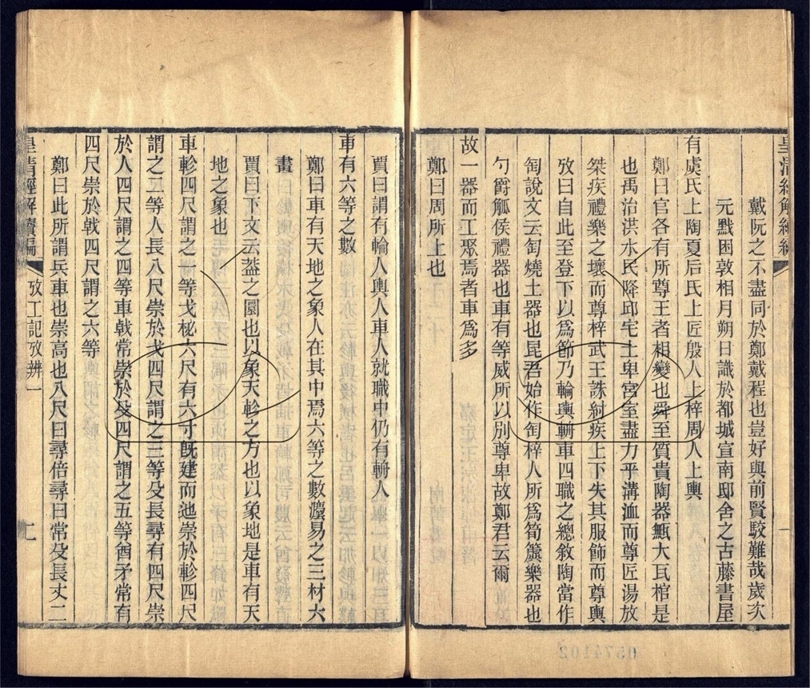 戴阮之不盡同於鄭戴程也豈好與前賢駮難哉歲次
元黓困敦相月朔日識於都城宣南邸舍之古藤書屋
有虞氏上陶夏后氏上匠殷人上梓周人上輿
鄭曰官各有所尊王者相變也舜至質貴陶器甒大瓦棺是
也禹治洪水民降邱宅土卑宮室盡力乎溝洫而尊匠湯放
桀疾禮樂之壞而尊梓武王誅紂疾上下失其服飾而尊輿
攷曰自此至登下以爲節乃輪輿輈車四職之總敘陶當作
匋說文云匋燒土器也昆君始作匋梓人所爲筍簴樂器也
勺爵觚侯禮器也車有等威所以別尊卑故鄭君云爾
故一器而工聚焉者車爲多
鄭曰周所上也
賈曰謂有輪人輿人車人就職中仍有輈人
車有六等之數
鄭曰車有天地之象人在其中焉六等之數灋易之三材六
畫
賈曰下文云葢之圜也以象天軫之方也以象地是車有天
地之象也
車軫四尺謂之一等戈柲六尺有六寸旣建而迆崇於軫四尺
謂之二等人長八尺崇於戈四尺謂之三等殳長尋有四尺崇
於人四尺謂之四等車戟常崇於殳四尺謂之五等酋矛常有
四尺崇於戟四尺謂之六等
鄭曰此所謂兵車也崇高也八尺曰尋倍尋曰常殳長丈二
皇清經解續編
攷工記攷辨一
七